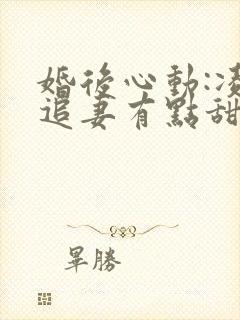 婚後心動:凌
追妻有點甜
畢勝